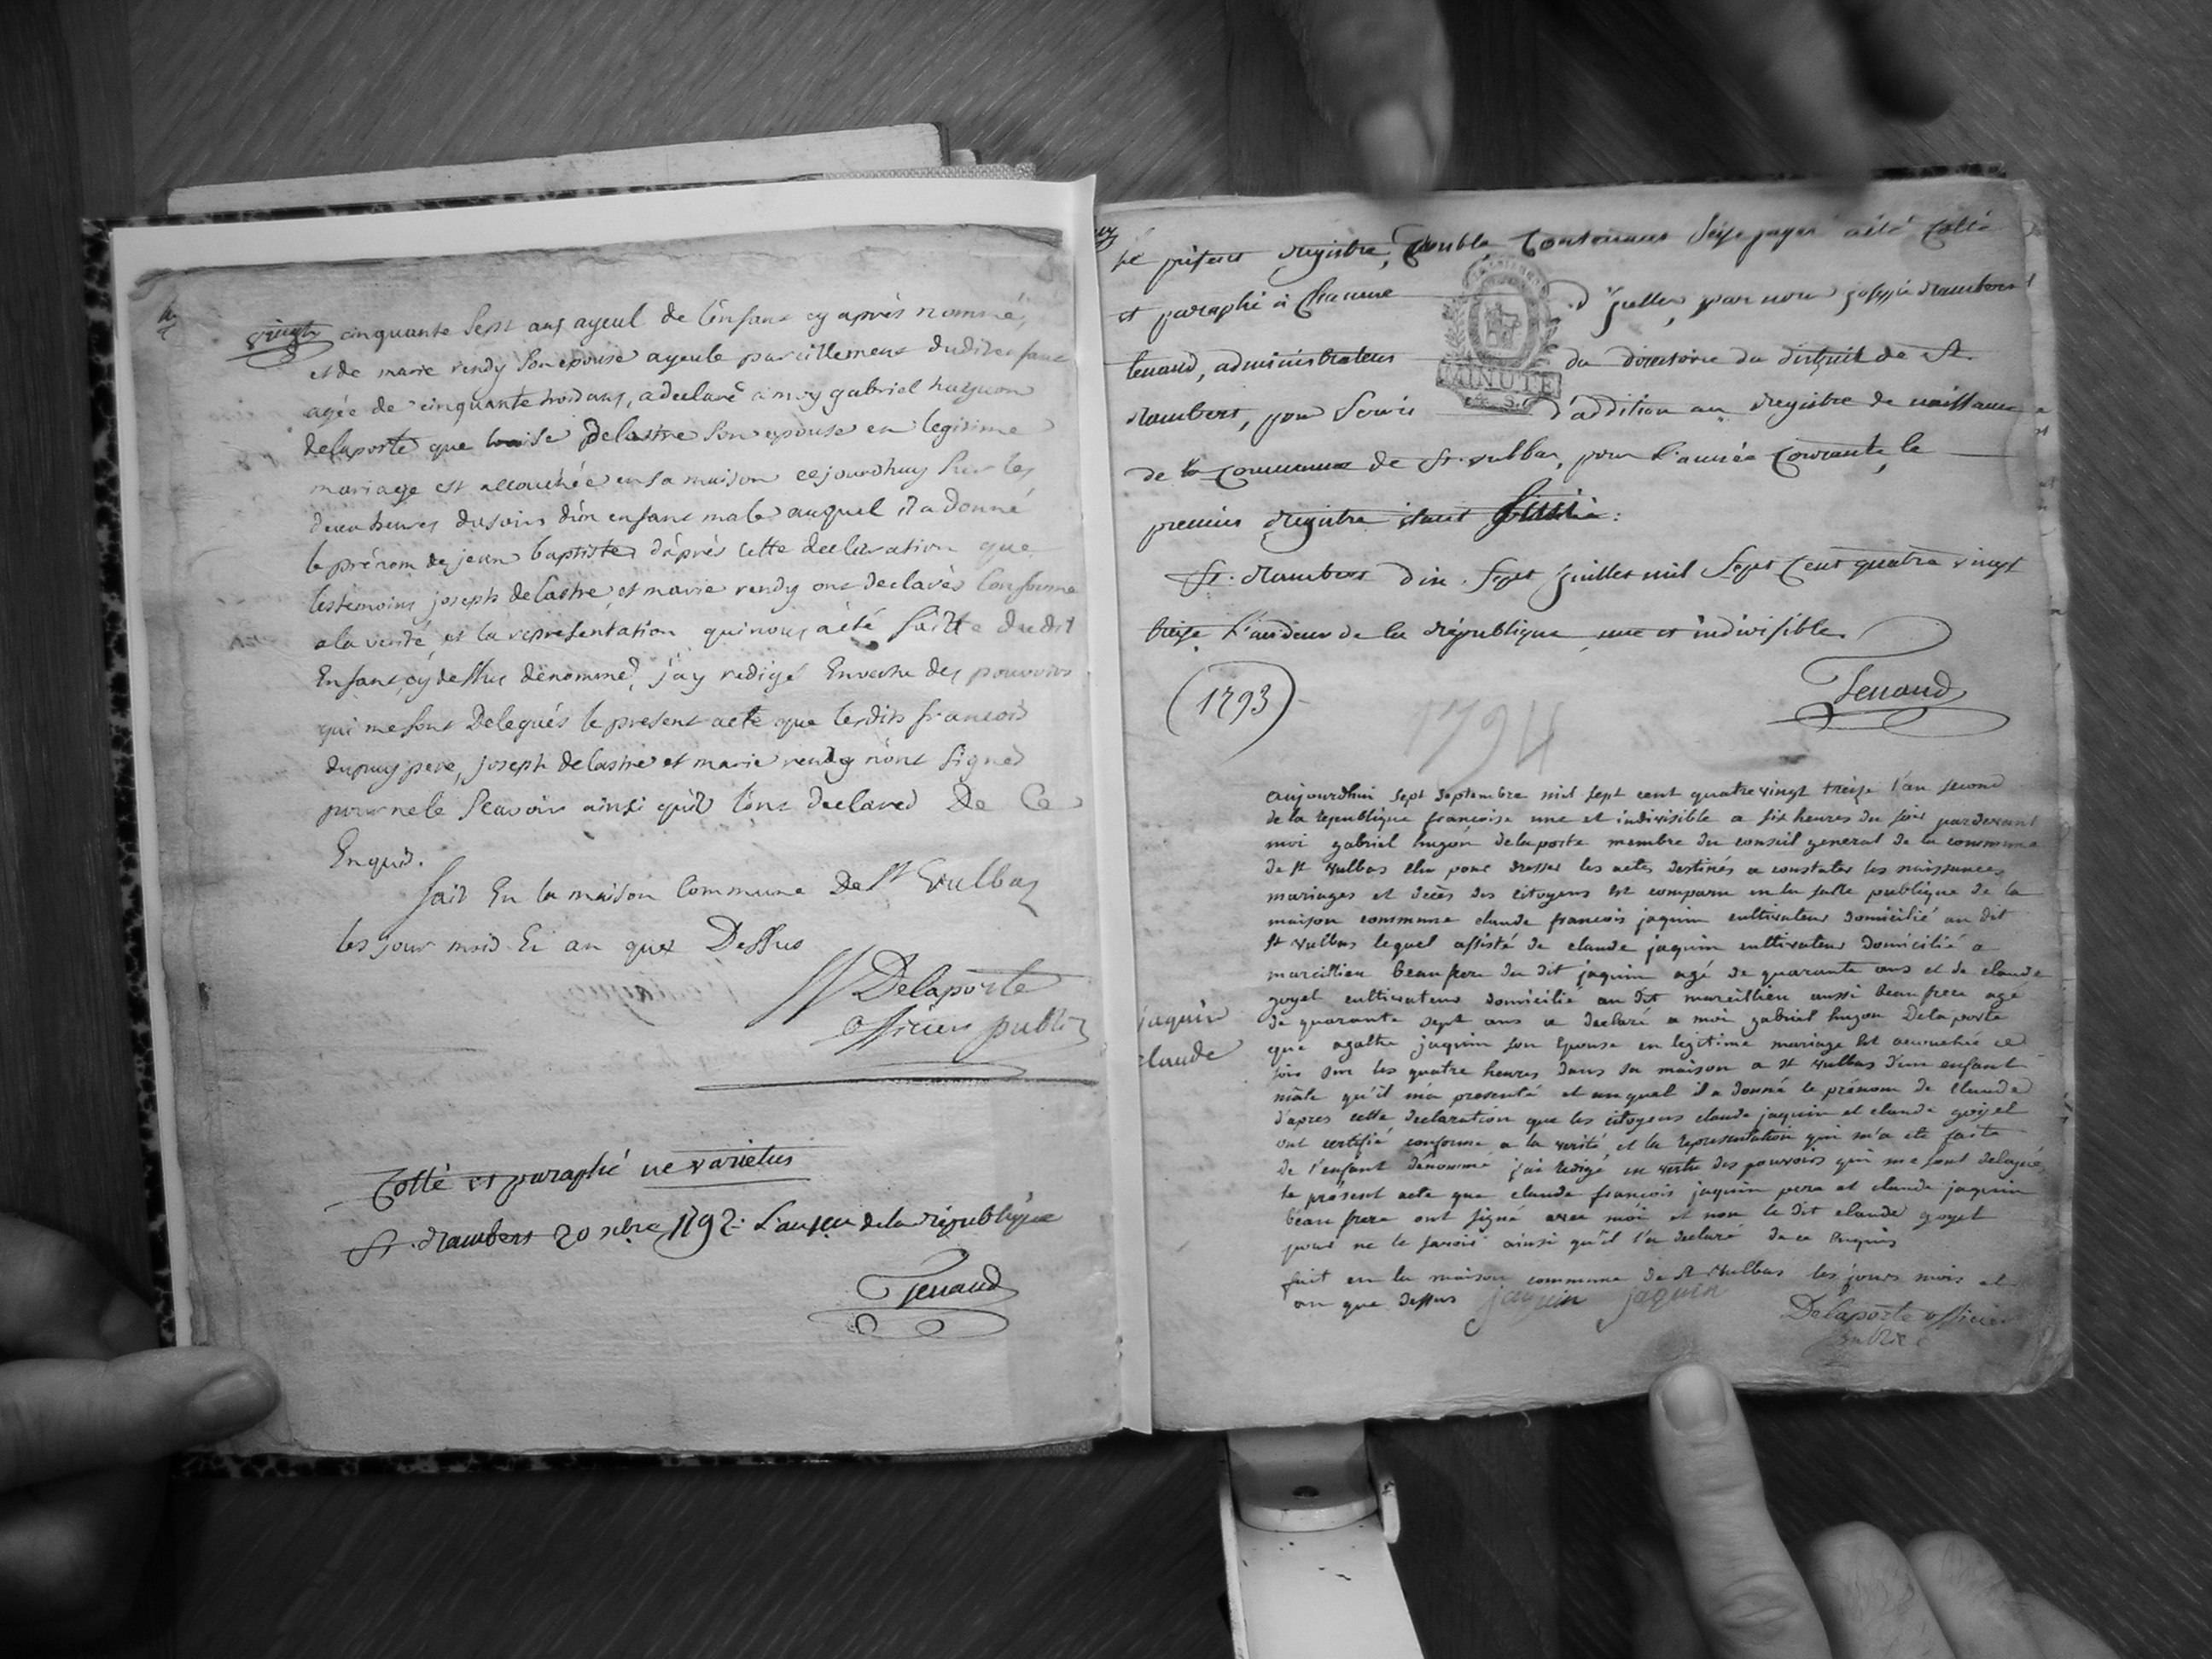 vingt cinquante sept ans ayeul de l'enfant cy après nommé,
et de marie rendy son epouse ayeule pareillement dudit enfant
agée de cinquante trois ans, a declaré a moy gabriel hugon
delaporte que louise Delastre son epouse en legitime
mariage est accouchée en sa maison cejourdhuy sur les
deux heures du soir d'un enfant male auquel il a donné
le prénom de jean baptiste d'après cette declaration que
les temoins joseph delastre et marie rendy ont declarés conforme
a la verité, et la representation qui nous a été faitte dudit
Enfant cy dessus dénommé, j'ay redigé En vertu des pouvoirs
qui me sont Delegués le present acte que lesdits francois
dupuy pere, joseph delastre et marie rendy n'ont signé
pour ne le sçavoir ainsi qu'il l'ont declaré De Ce
Enquis.
fait En la maison Commune De St Vulbas
les jour mois Et an que Dessus
Delaporte
officier public
Cotté et paraphé ne varietur
St. Rambert 20 9bre 1792. L'an 1er de la république
Tenand
Le présent registre, double, contenant seize pages a été cotté
et paraphé à chacune d'icelles, par nous joseph rambert
tenand, administrateur du directoire du district de St.
MINUTE
Rambert, pour servir d'addition au registre de naissance
de la commune de St. vulbas, pour l'année courante, le
premier registre étant fini:
St. Rambert dix sept juillet mil sept cent quatre vingt
treize L'an deux de la république une et indivisible.
(1793)
Tenand
1794
aujourdhui sept septembre mil sept cent quatre vingt treize l'an second
de la republique francoise une et indivisible a six heures du soir pardevant
moi gabriel hugon delaporte membre du conseil general de la commune
de st vulbas elu pour dresser les actes destinés a constater les naissances
mariages et décès des citoyens est comparu en la salle publique de la
maison commune claude francois jaquin cultivateur domicilié au dit
st vulbas lequel assisté de claude jaquin cultivateur domicilié a
marcillieu beau frere du dit jaquin agé de quarante ans et de claude
goyet cultivateur domicilié au dit marcillieu aussi beau frere agé
de quarante sept ans a declaré a moi gabriel hugon Delaporte
jaquin
claude
que agathe jaquin son Epouse en legitime mariage est acouchée ce
soir sur les quatre heures dans sa maison a st vulbas d'un enfant
mâle qu'il m'a presenté et auquel il a donné le prénom de claude
d'apres cette declaration que les citoyens claude jaquin et claude goyet
ont certifié conforme a la verité, et la representation qui m'a eté faite
de l'enfant dénommé j'ai redigé en vertu des pouvoirs qui me sont delegués
le présent acte que claude francois jaquin pere et claude jaquin
beau frere ont signé avec moi et non le dit claude goyet
pour ne le savoir ainsi qu'il l'a declaré de ce Enquis
fait en la maison commune de st Vulbas les jours mois et
an que dessus jaquin jaquin
Delaporte officier
public